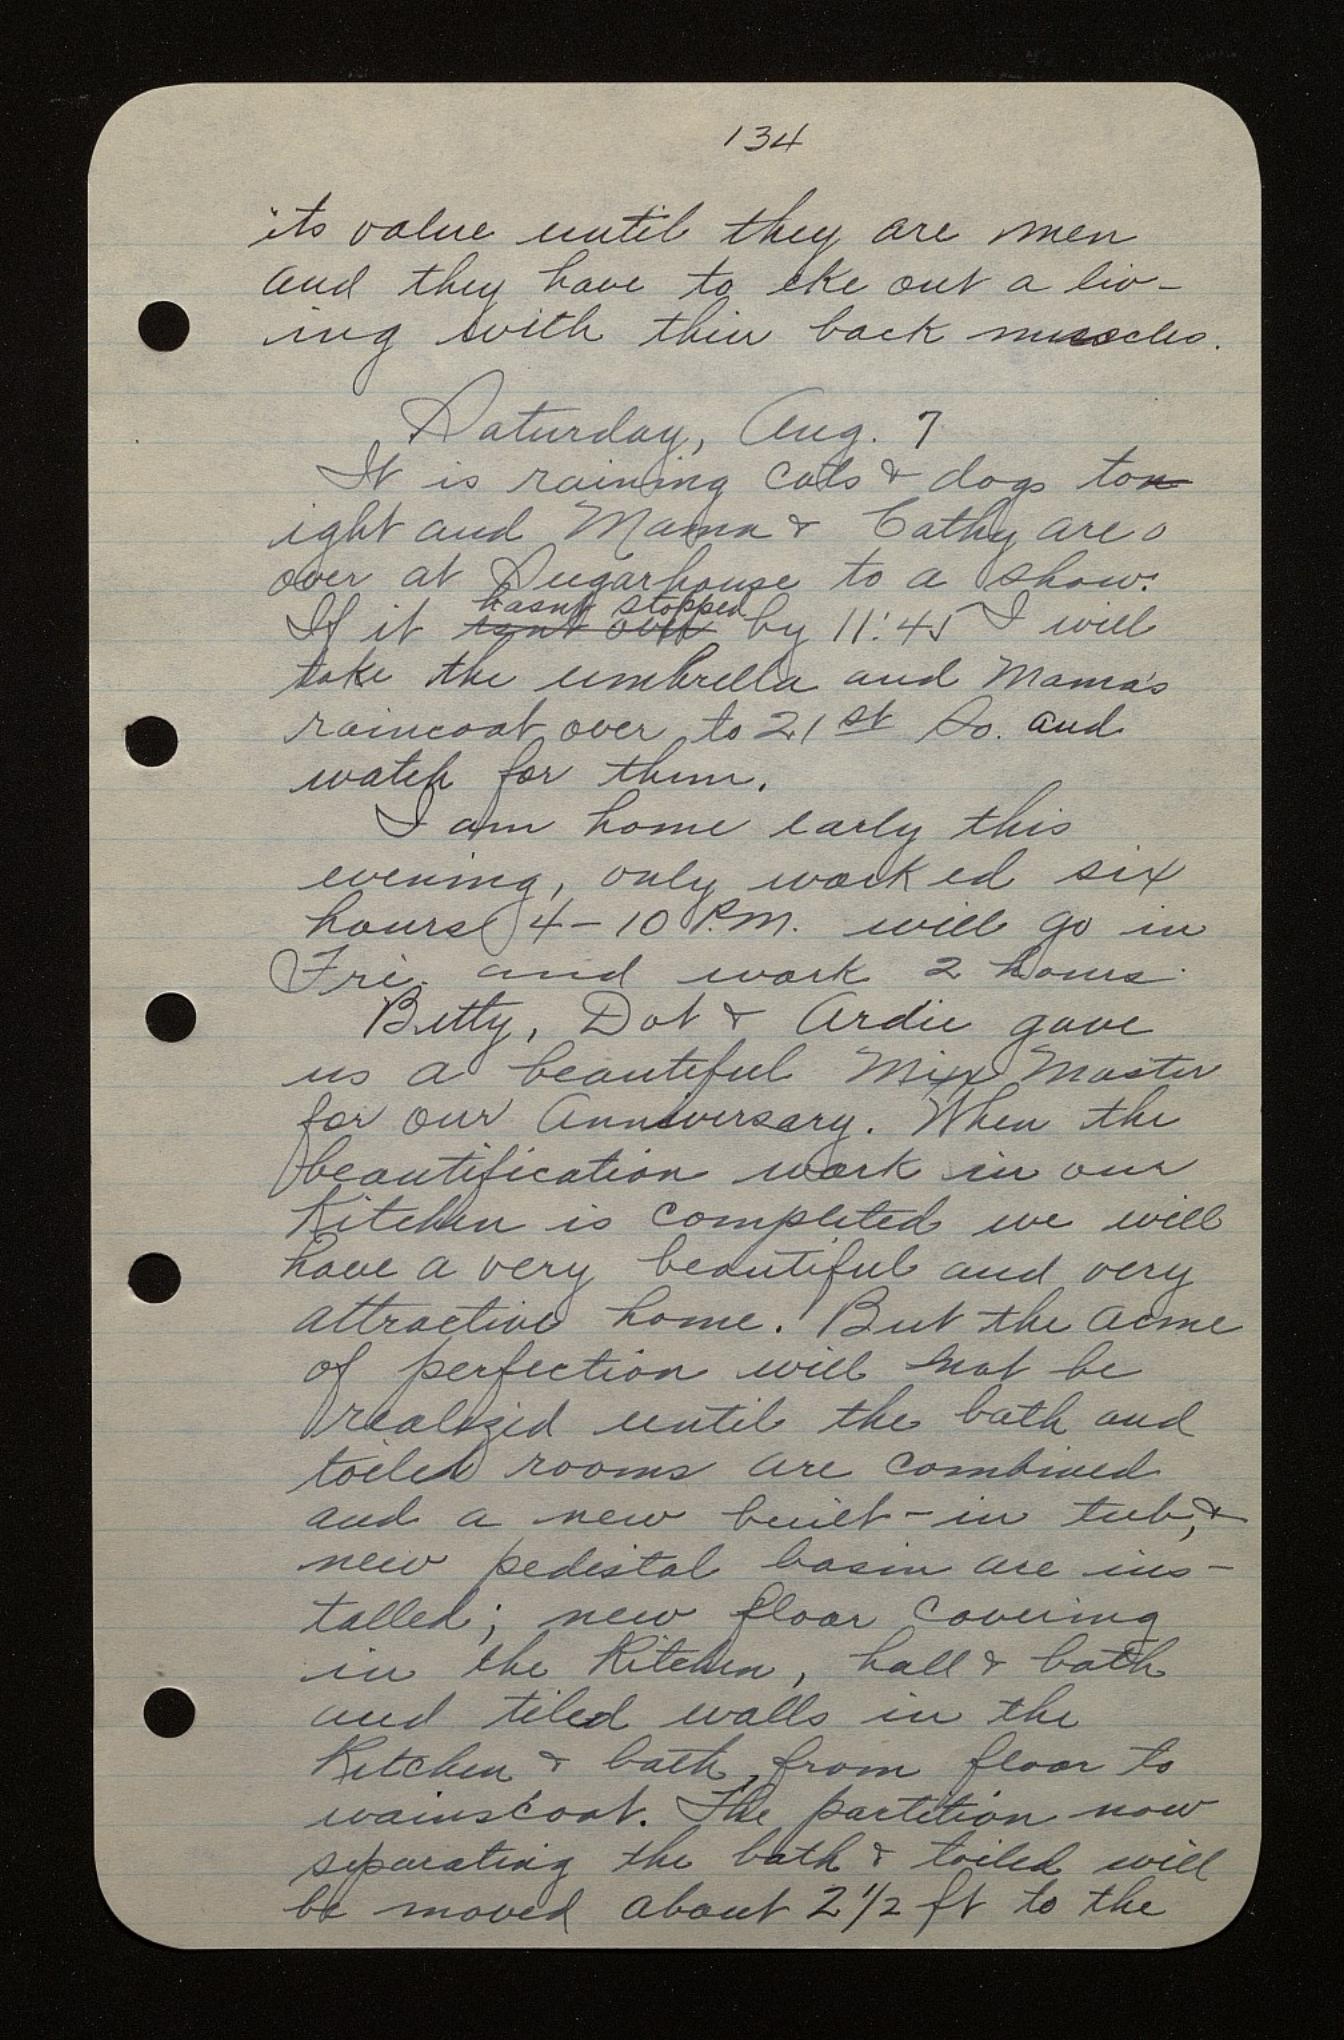 134
its value until they are men
and they have to eke out a liv-
ing with their back muscles.
Saturday, Aug. 7
It is raining cats & dogs ton
ight and Mama & Cathy are
over at Sugarhouse to a show.
hasnt stopped
If it isnt over by 11:45 I will
take the umbrella and Mama's
raincoat over to 21st So. and
watch for them.
I am home early this
evening, only worked six
hours 4-10 P.M. will go in
Fri. and work 2 hours.
Betty, Dot & Ardie gave
us a beautiful Mix Master
for our Anniversary. When the
beautification work in our
Kitchen is completed we will
have a very beautiful and very
attractive home. But the acme
of perfection will not be
realized until the bath and
toilet rooms are combined
and a new built-in tub, &
new pedistal basin are ins-
talled; new floor covering
in the Kitchen, hall & bath
and tiled walls in the
Kitchen & bath, from floor to
wainscoat. The partition now
separating the bath & toiled will
be moved about 2 1/2 ft to the